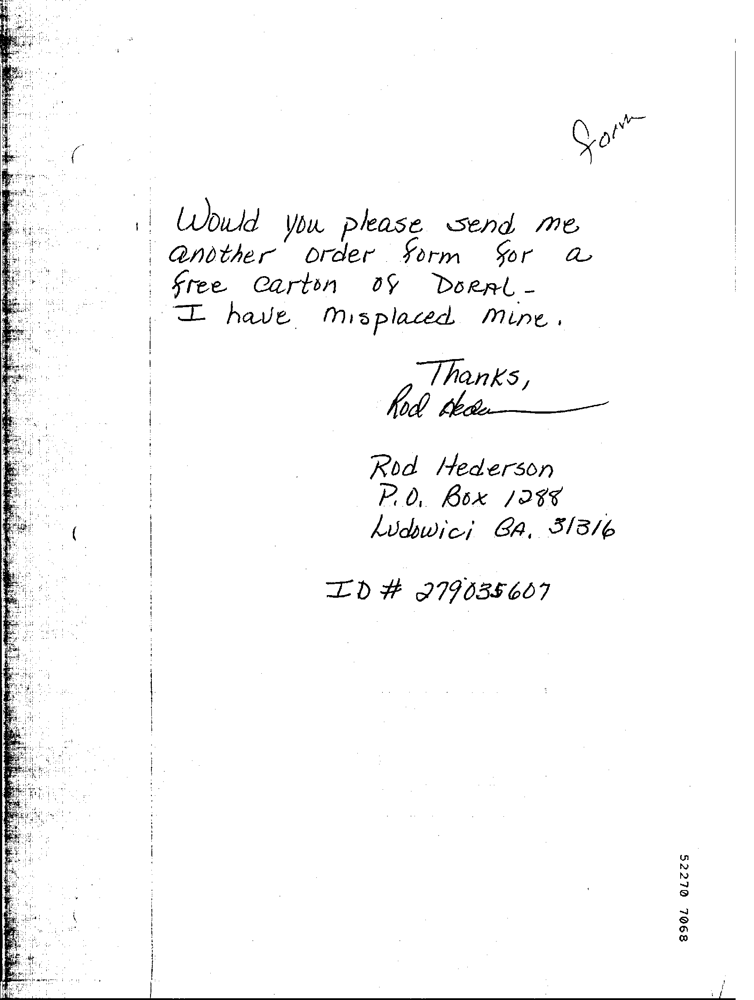 form
Would you please send me
another order form for a
free carton of DORAL -
I have misplaced mine.
Thanks,
Rod
Rod Hederson
P.O. Box 1288
Ludowici GA. 31316
ID # 279035607
52270 7068